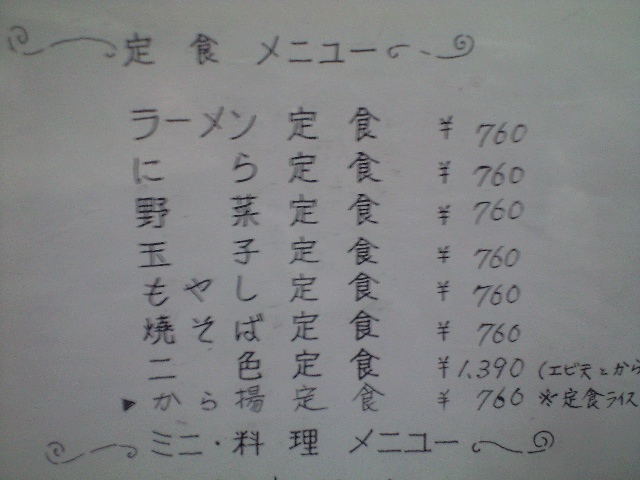 定食メニュー
ラーメン定食 ¥760
にら定食 ¥760
野菜定食 ¥760
玉子定食 ¥760
もやし定食 ¥760
焼そば定食 ¥760
二色定食 ¥1,390 (エビ天とから
▶から揚定食 ¥760 ※定食ライス
ミニ・料理メニュー